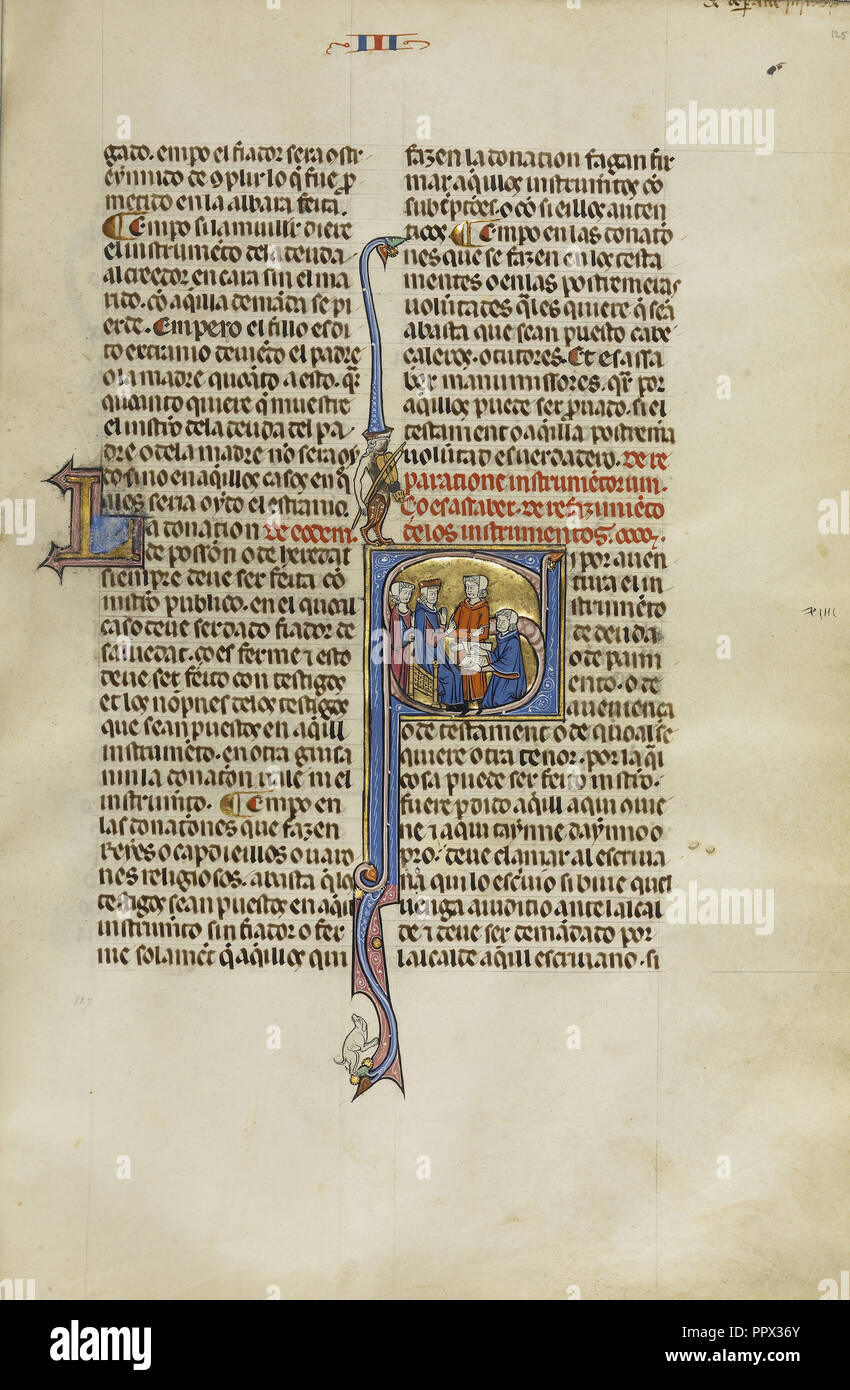 III
125
gado. empo el fiador sera ostr
eynnido de 9plir lo q̄ fue p̄
metido en la albara feita.
¶ Empo si la muiller diere
el instrumēto de la deuda
al creedor en cara sin el ma
rido. cō aq̄illa demāda se pi
erde. Empero el fillo es di
to extranio deuiēdo el padre
o la madre quoāto a esto. q̄r
quoanto quiere q̄ muestre
el instrō de la deuda del pa
dre o de la madre nō sera oy
do sino en aq̄illos casos en q̄
illos seria oydo el estranio.
La donation de eodem.
de possiōn o de heredat
siempre deue ser feita cō
instrō publico. en el quoal
caso deue ser dado fiador de
saluedat. co es ferme ⁊ esto
deue ser feito con testigos
et los nōpnes de los testigos
que sean puestos en aq̄ill
instrumēto. en otra guisa
nin la donatōn uale ni el
instrumīto. ¶ Empo en
las donatōnes que fazen
Reyes o capdieillos o uaro
nes religiosos. abasta q̄ los
testigos sean puestos en aq̄ill
instrumīto sin fiador o fer
me solamēt q̄ aq̄illos qui
fazen la donation fagan fir
mar aq̄illos instrumētos cō
subscptōes. o cō sieillos auten
ticos ¶ Empo en las donatō
nes que se fazen en los testa
mentes o en las postremeras
uolūtades q̄les quiere q̄ seā
abasta que sean puesto cabe
caleros. o tutores. Et es assa
ber manumissores. q̄r por
aq̄illos puede ser prouado. si el
testament o aq̄illa postremā
uoluntad es uerdadero. De re
paratione instrumētorum.
Co es assaber. de refazimiēto
de los instrumentos.
Si por auen
tura el in
strumēto
de deuda
o de paim
ento. o de
auenienca
o de testament o de quoal se
quiere otra tenor. por la q̄l
cosa puede ser feito instrō.
fuere pdido aq̄ill a qui ouie
ne ⁊ a qui taynne daynno o
pro. deue clamar al escriua
nā qui lo escriuio si biue que
uenga a iuditio ante lalcal
de ⁊ deue ser demādado por
lalcalde aq̄ill escriuano. si
127
a alamy stock photo
alamy
Image ID: PPX36Y
www.alamy.com